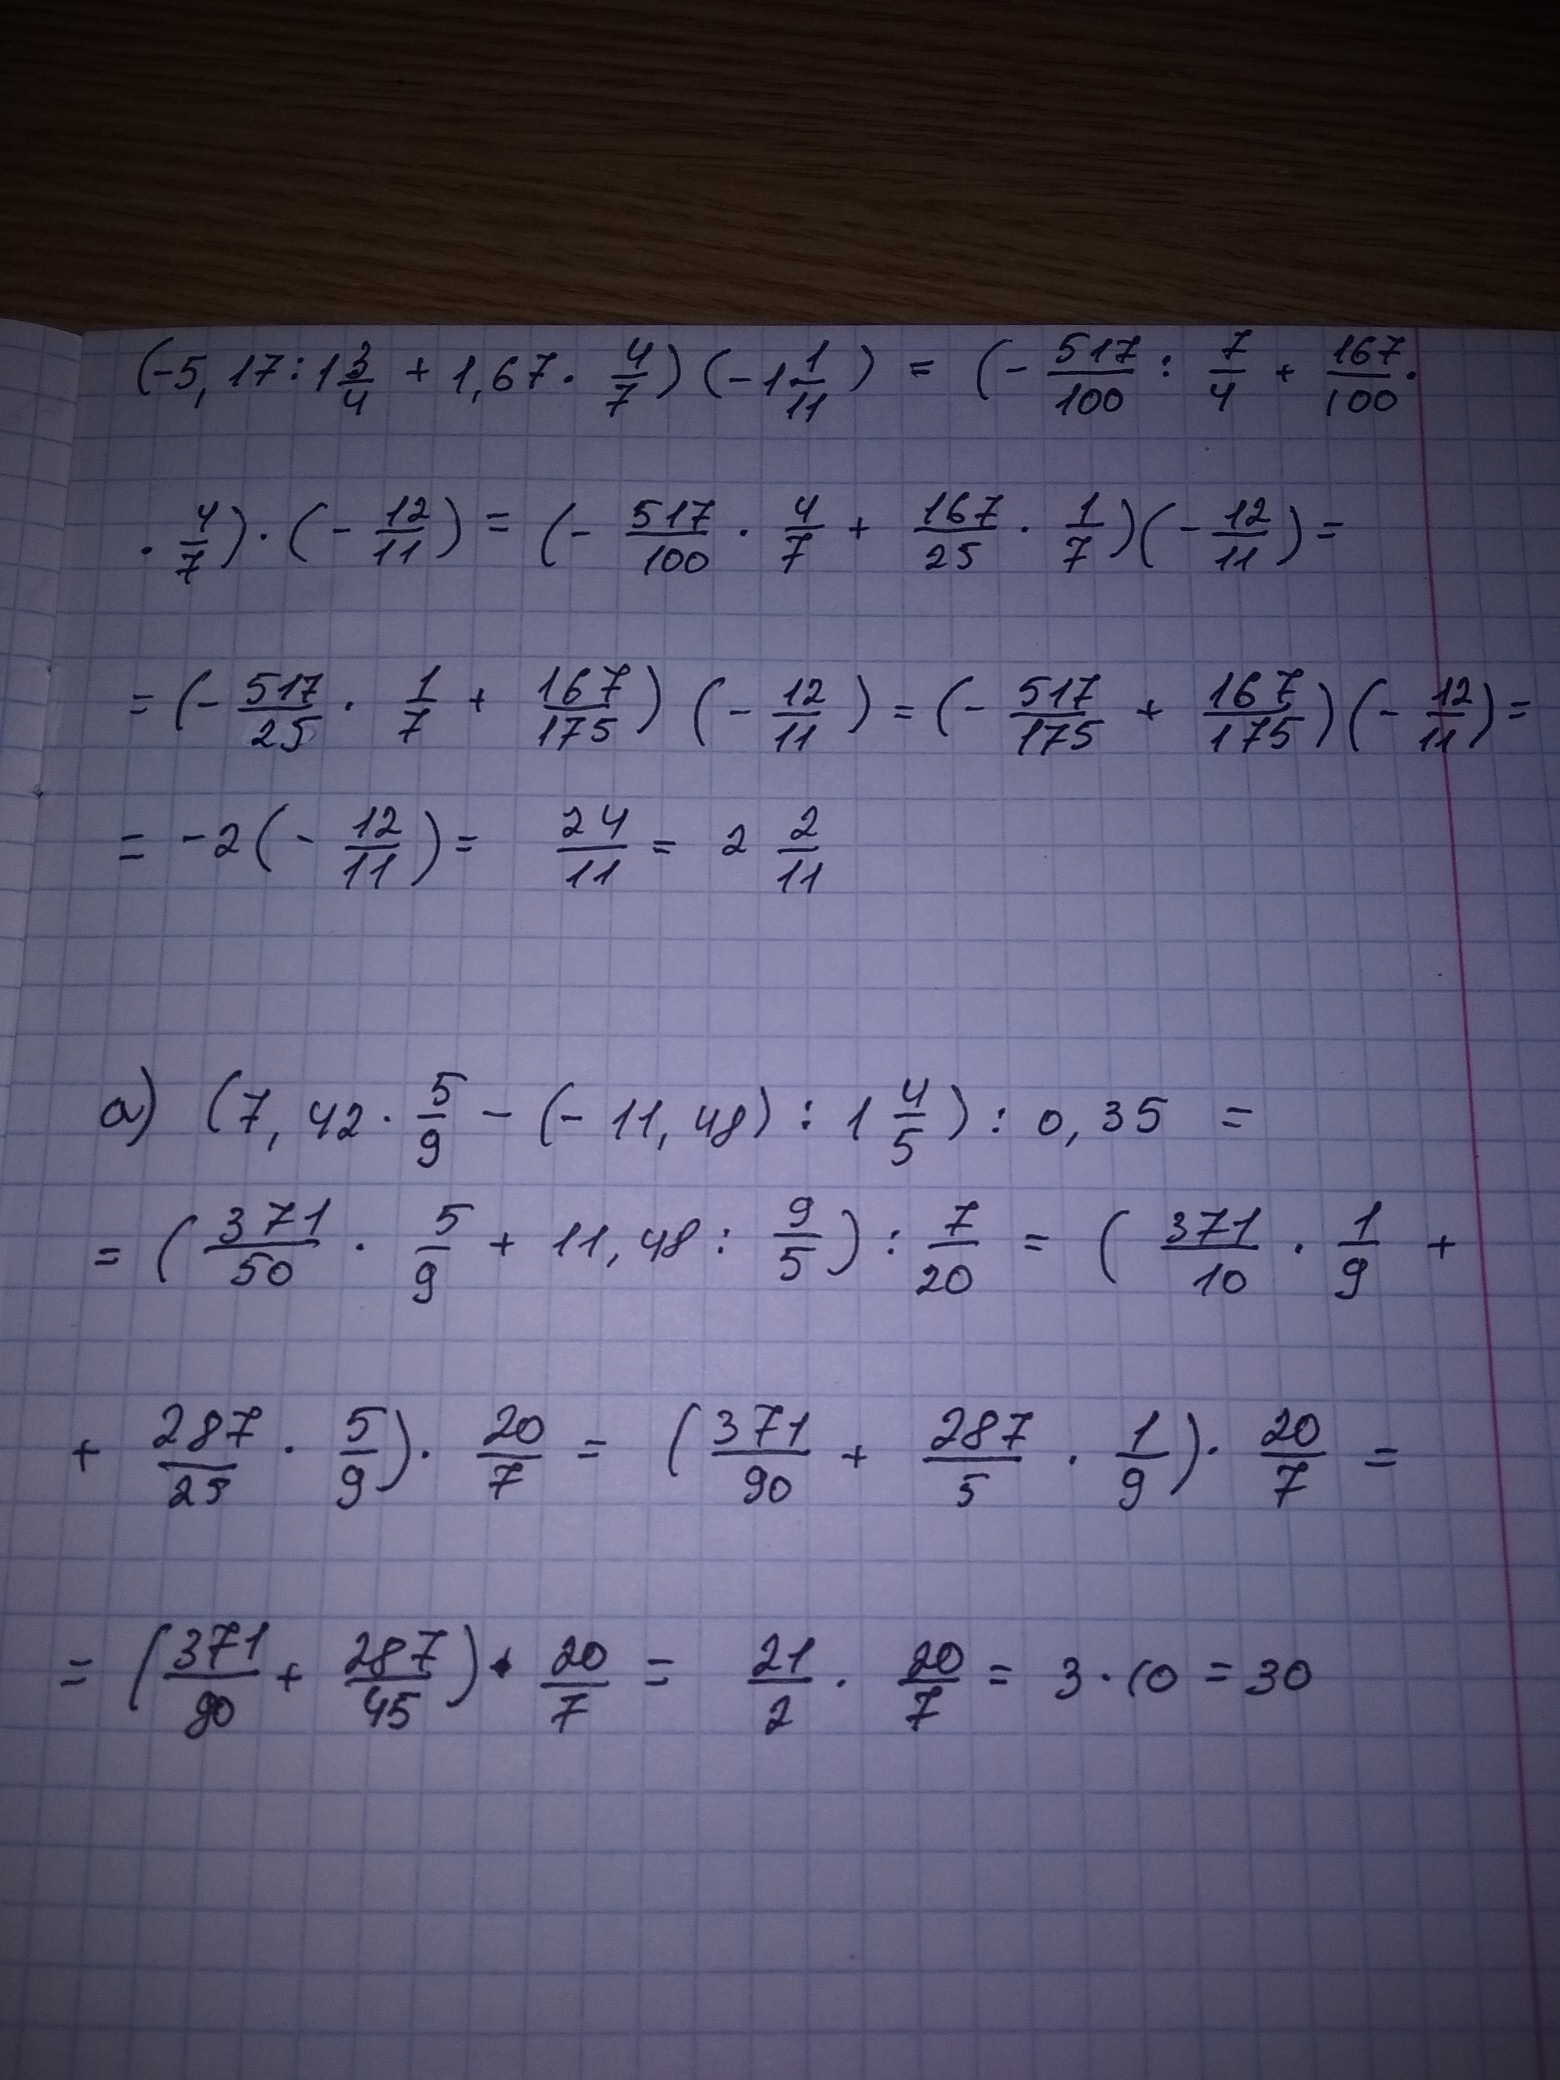 (-5,17:1 3/4 + 1,67 · 4/7)(-1 1/11) = (- 517/100 : 7/4 + 167/100 ·
· 4/7) · (- 12/11) = (- 517/100 · 4/7 + 167/25 · 1/7)(- 12/11) =
= (- 517/25 · 1/7 + 167/175)(- 12/11) = (- 517/175 + 167/175)(- 12/11) =
= -2(- 12/11) = 24/11 = 2 2/11
а) (7,42 · 5/9 - (-11,48) : 1 4/5) : 0,35 =
= (371/50 · 5/9 + 11,48 : 9/5) : 7/20 = (371/10 · 1/9 +
+ 287/25 · 5/9) · 20/7 = (371/90 + 287/5 · 1/9) · 20/7 =
= (371/90 + 287/45) · 20/7 = 21/2 · 20/7 = 3 · 10 = 30